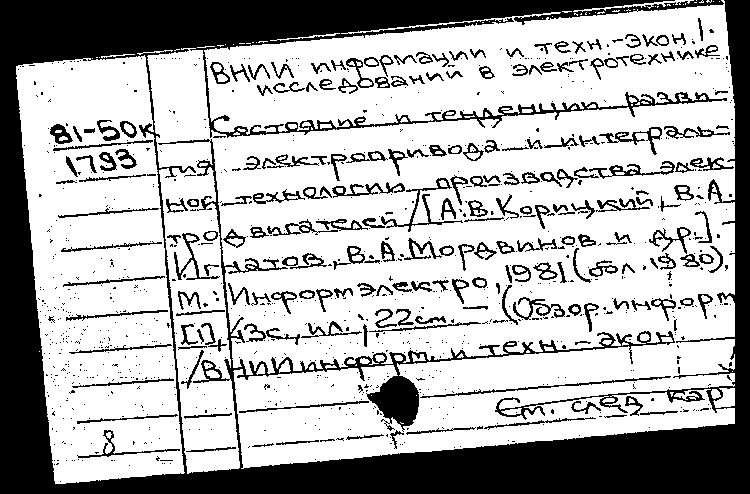 ВНИИ информации и техн.-экон. 1.
исследований в электротехнике
81-50к
1793
Состояние и тенденции разви-
тия электропривода и интеграль-
ной технологии производства элек-
тродвигателей / [А.В. Корицкий, В.А.
Игнатов, В.А. Мордвинов и др.]. -
М.: Информэлектро, 1981 (обл. 1980).
[1], 43с., ил.; 22см. — (Обзор. информ
/ ВНИИ информ. и техн.-экон.
См. след. кар
8